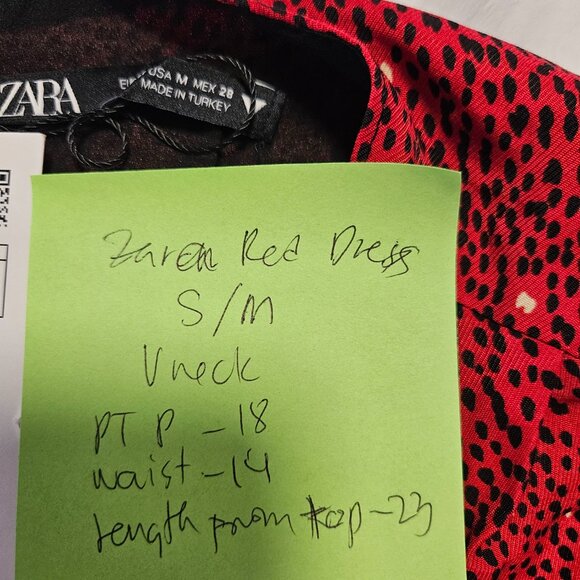 ZARA
USA M MEX 28
MADE IN TURKEY
Zara Red Dress
S/M
V neck
PT P - 18
waist - 14
length from top - 23